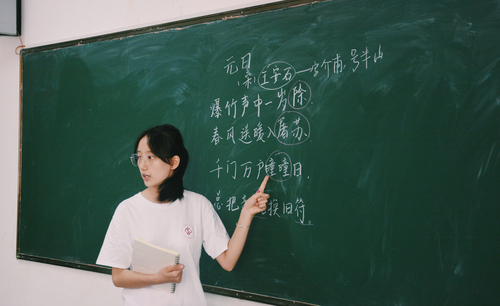 元日
(宋)王安石——字介甫,号半山
爆竹声中一岁除.
春风送暖入屠苏.
千门万户曈曈日.
总把 换旧符。